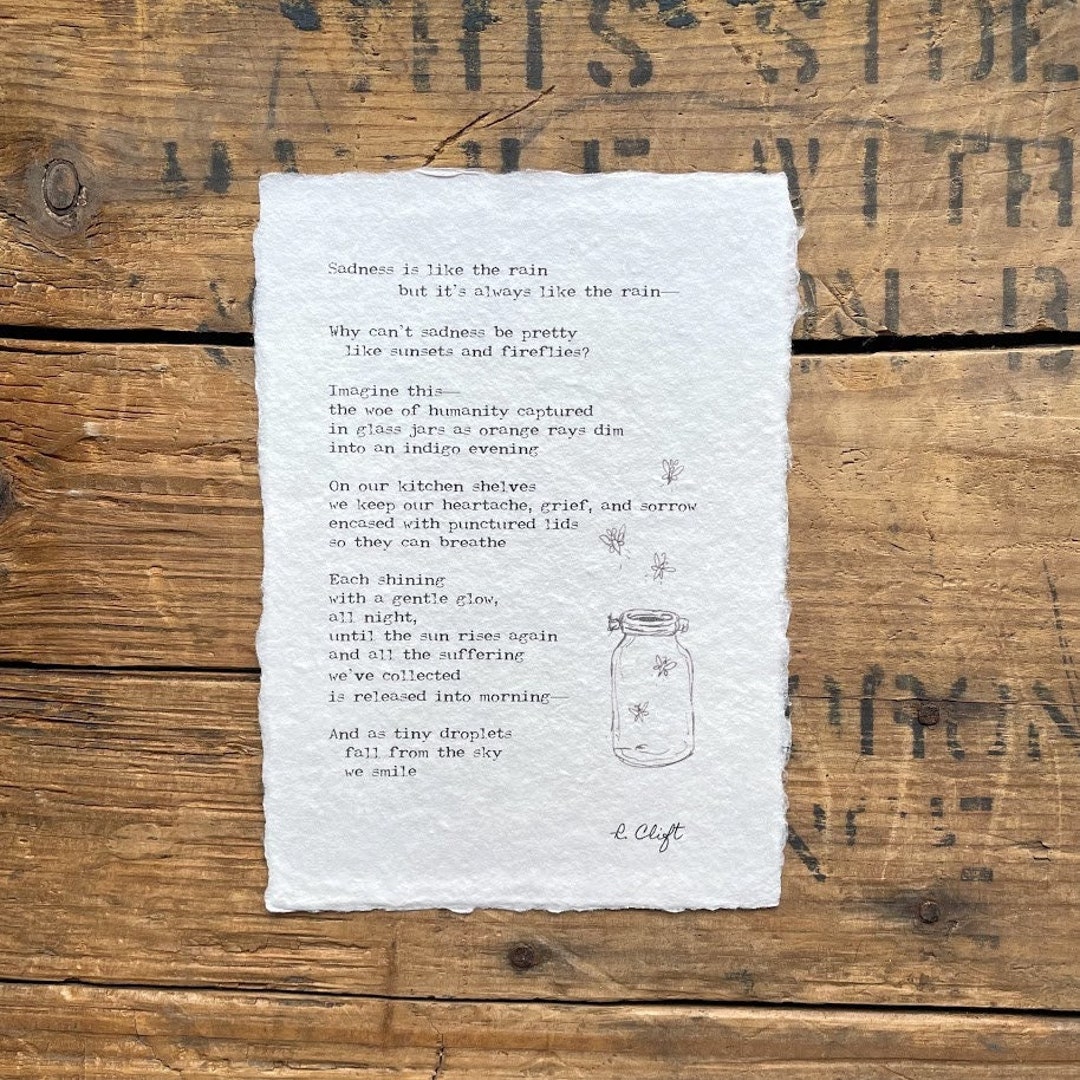 THIS SIDE
WITH
Sadness is like the rain
but it's always like the rain—
Why can't sadness be pretty
like sunsets and fireflies?
Imagine this—
the woe of humanity captured
in glass jars as orange rays dim
into an indigo evening
On our kitchen shelves
we keep our heartache, grief, and sorrow
encased with punctured lids
so they can breathe
Each shining
with a gentle glow,
all night,
until the sun rises again
and all the suffering
we've collected
is released into morning—
And as tiny droplets
fall from the sky
we smile
R. Clift